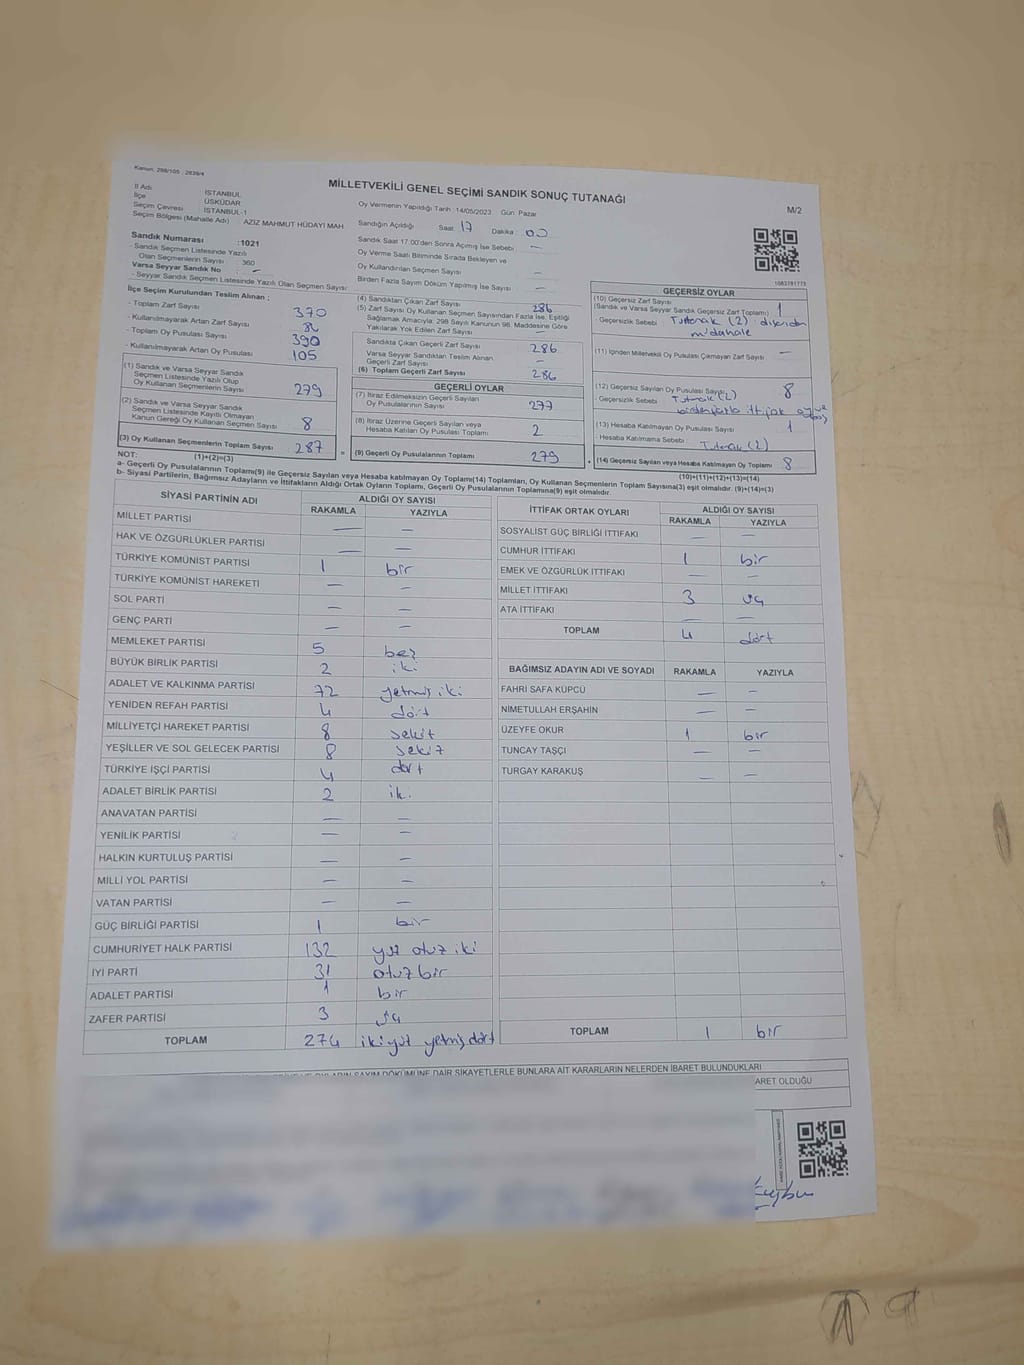 Kanun: 298/105 : 2839/4
MİLLETVEKİLİ GENEL SEÇİMİ SANDIK SONUÇ TUTANAĞI
M/2
İl Adı İSTANBUL
İlçe ÜSKÜDAR
Seçim Çevresi İSTANBUL-1
Seçim Bölgesi (Mahalle Adı) AZİZ MAHMUT HÜDAYİ MAH
Sandık Numarası :1021
- Sandık Seçmen Listesinde Yazılı
Olan Seçmenlerin Sayısı 360
Varsa Seyyar Sandık No : –
- Seyyar Sandık Seçmen Listesinde Yazılı Olan Seçmen Sayısı:
Oy Vermenin Yapıldığı Tarih : 14/05/2023 Gün: Pazar
Sandığın Açıldığı Saat 17 Dakika 00
Sandık Saat 17.00'den Sonra Açımış İse Sebebi : –
Oy Verme Saati Bitiminde Sırada Bekleyen ve
Oy Kullandırılan Seçmen Sayısı –
Birden Fazla Sayım Döküm Yapılmış İse Sayısı : –
1083781773
İlçe Seçim Kurulundan Teslim Alınan ;
- Toplam Zarf Sayısı 370
- Kullanılmayarak Artan Zarf Sayısı
- Toplam Oy Pusulası Sayısı 390
- Kullanılmayarak Artan Oy Pusulası 105
(1) Sandık ve Varsa Seyyar Sandık
Seçmen Listesinde Yazılı Olup
Oy Kullanan Seçmenlerin Sayısı 279
(2) Sandık ve Varsa Seyyar Sandık
Seçmen Listesinde Kayıtlı Olmayan
Kanun Gereği Oy Kullanan Seçmen Sayısı 8
(3) Oy Kullanan Seçmenlerin Toplam Sayısı 287 =
(4) Sandıktan Çıkan Zarf Sayısı 286
(5) Zarf Sayısı Oy Kullanan Seçmen Sayısından Fazla İse, Eşitliği
Sağlamak Amacıyla; 298 Sayılı Kanunun 98. Maddesine Göre
Yakılarak Yok Edilen Zarf Sayısı –
Sandıkta Çıkan Geçerli Zarf Sayısı 286
Varsa Seyyar Sandıktan Teslim Alınan
Geçerli Zarf Sayısı –
(6) Toplam Geçerli Zarf Sayısı 286
GEÇERLİ OYLAR
(7) İtiraz Edilmeksizin Geçerli Sayılan
Oy Pusulalarının Sayısı 277
(8) İtiraz Üzerine Geçerli Sayılan veya
Hesaba Katılan Oy Pusulası Toplamı 2
(9) Geçerli Oy Pusulalarının Toplamı 279 +
GEÇERSİZ OYLAR
(10) Geçersiz Zarf Sayısı 1
(Sandık ve Varsa Seyyar Sandık Geçersiz Zarf Toplamı)
- Geçersizlik Sebebi : Tutanak (2) dışarıdan
müdahale
(11) İçinden Milletvekili Oy Pusulası Çıkmayan Zarf Sayısı –
(12) Geçersiz Sayılan Oy Pusulası Sayısı 8
- Geçersizlik Sebebi Tutanak (2)
birden fazla ittifak
(13) Hesaba Katılmayan Oy Pusulası Sayısı 1
- Hesaba Katılmama Sebebi : Tutanak (2)
(14) Geçersiz Sayılan veya Hesaba Katılmayan Oy Toplamı 8
NOT: (1)+(2)=(3) (10)+(11)+(12)+(13)=(14)
a- Geçerli Oy Pusulalarının Toplamı(9) ile Geçersiz Sayılan veya Hesaba katılmayan Oy Toplamı(14) Toplamları, Oy Kullanan Seçmenlerin Toplam Sayısına(3) eşit olmalıdır. (9)+(14)=(3)
b- Siyasi Partilerin, Bağımsız Adayların ve İttifakların Aldığı Ortak Oyların Toplamı, Geçerli Oy Pusulalarının Toplamına(9) eşit olmalıdır.
SİYASİ PARTİNİN ADI ALDIĞI OY SAYISI
RAKAMLA YAZIYLA
MİLLET PARTİSİ – –
HAK VE ÖZGÜRLÜKLER PARTİSİ – –
TÜRKİYE KOMÜNİST PARTİSİ 1 bir
TÜRKİYE KOMÜNİST HAREKETİ – –
SOL PARTİ – –
GENÇ PARTİ – –
MEMLEKET PARTİSİ 5 beş
BÜYÜK BİRLİK PARTİSİ 2 iki
ADALET VE KALKINMA PARTİSİ 72 yetmiş iki
YENİDEN REFAH PARTİSİ 4 dört
MİLLİYETÇİ HAREKET PARTİSİ 8 sekiz
YEŞİLLER VE SOL GELECEK PARTİSİ 8 sekiz
TÜRKİYE İŞÇİ PARTİSİ 4 dört
ADALET BİRLİK PARTİSİ 2 iki
ANAVATAN PARTİSİ – –
YENİLİK PARTİSİ – –
HALKIN KURTULUŞ PARTİSİ – –
MİLLİ YOL PARTİSİ – –
VATAN PARTİSİ – –
GÜÇ BİRLİĞİ PARTİSİ 1 bir
CUMHURİYET HALK PARTİSİ 132 yüz otuz iki
İYİ PARTİ 31 otuz bir
ADALET PARTİSİ 1 bir
ZAFER PARTİSİ 3 üç
TOPLAM 274 ikiyüz yetmiş dört
İTTİFAK ORTAK OYLARI ALDIĞI OY SAYISI
RAKAMLA YAZIYLA
SOSYALİST GÜÇ BİRLİĞİ İTTİFAKI – –
CUMHUR İTTİFAKI 1 bir
EMEK VE ÖZGÜRLÜK İTTİFAKI – –
MİLLET İTTİFAKI 3 üç
ATA İTTİFAKI – –
TOPLAM 4 dört
BAĞIMSIZ ADAYIN ADI VE SOYADI RAKAMLA YAZIYLA
FAHRİ SAFA KÜPCÜ – –
NİMETULLAH ERŞAHİN – –
ÜZEYFE OKUR 1 bir
TUNCAY TAŞÇI – –
TURGAY KARAKUŞ – –
TOPLAM 1 bir
OYLARIN SAYIM DÖKÜMÜNE DAİR ŞİKAYETLERLE BUNLARA AİT KARARLARIN NELERDEN İBARET BULUNDUKLARI
ARET OLDUĞU